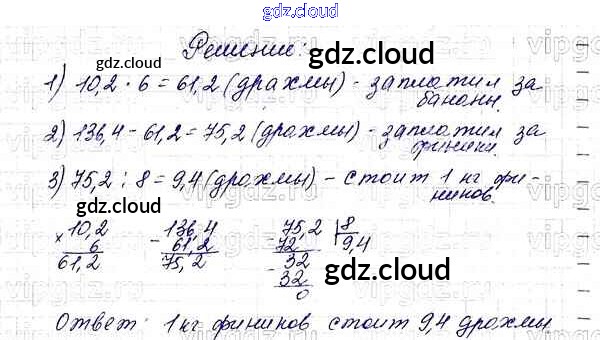 gdz.cloud
Решение:
gdz.cloud
gdz.cloud
1) 10,2 · 6 = 61,2 (драхмы) - заплатил за
бананы.
2) 136,4 - 61,2 = 75,2 (драхмы) - заплатил за
финики.
gdz.cloud
3) 75,2 : 8 = 9,4 (драхмы) - стоит 1 кг фи-
ников.
gdz.cloud
× 10,2 - 136,4 75,2 | 8
6 61,2 72 9,4
61,2 75,2 - 32
32
0
gdz.cloud
Ответ: 1 кг фиников стоит 9,4 драхмы